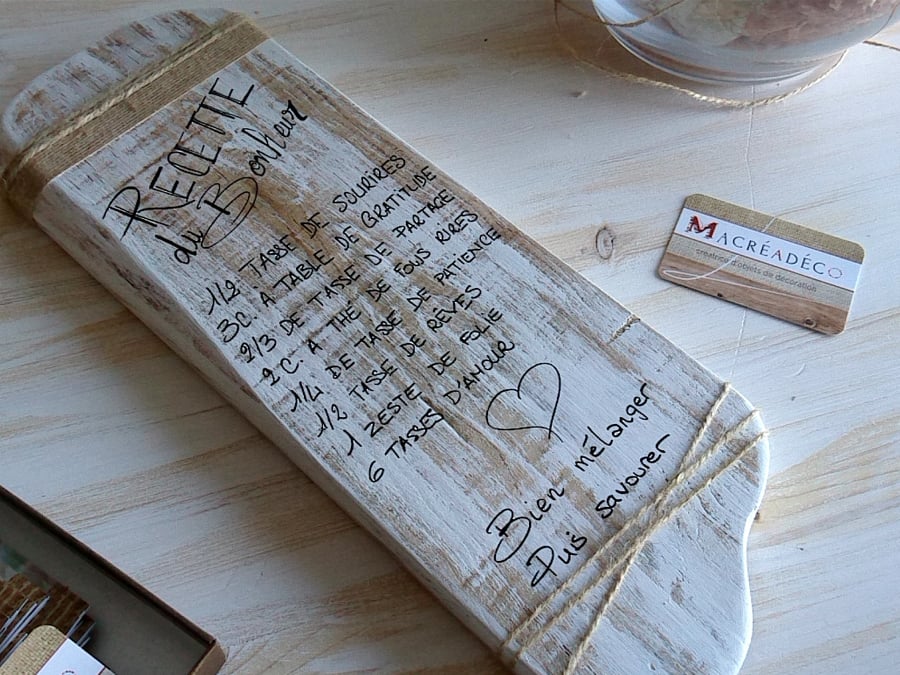 RECETTE
du Bonheur
1/2 TASSE DE SOURIRES
3C. A TABLE DE GRATITUDE
2/3 DE TASSE DE PARTAGE
2C. A THÉ DE FOUS RIRES
1/4 DE TASSE DE PATIENCE
1/2 TASSE DE RÊVES
1 ZESTE DE FOLIE
6 TASSES D'AMOUR
Bien mélanger
Puis savourer
MACRÉADÉCO
créatrice d'objets de décoration